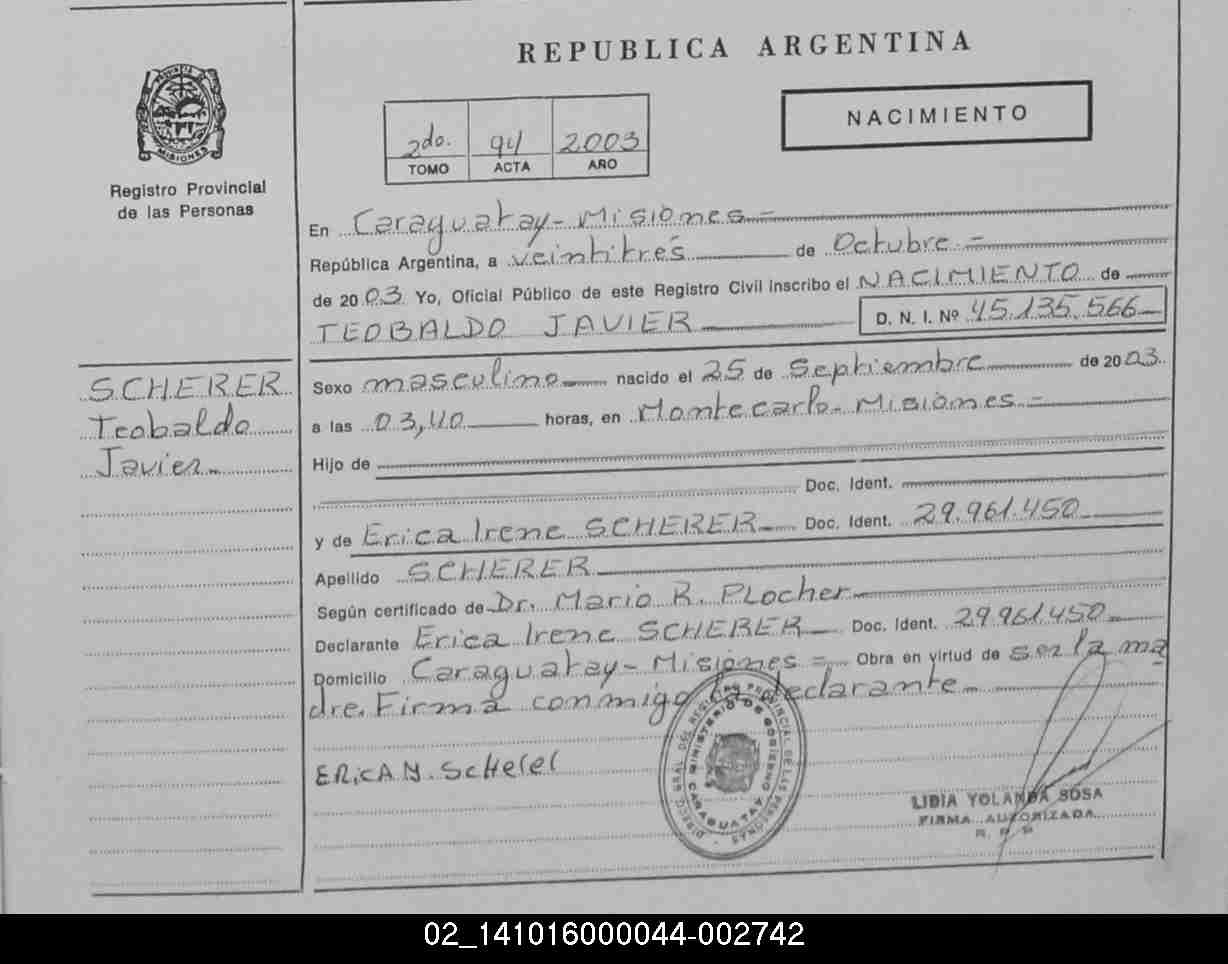 REPUBLICA ARGENTINA
PROVINCIA DE
MISIONES
Registro Provincial
de las Personas
2do. 94 2003
TOMO ACTA AÑO
NACIMIENTO
En Caraguatay - Misiones -
República Argentina, a veintitrés de Octubre -
de 2003 Yo, Oficial Público de este Registro Civil inscribo el NACIMIENTO de
TEOBALDO JAVIER D. N. I. Nº 45.135.566
SCHERER
Teobaldo
Javier
Sexo masculino nacido el 25 de Septiembre de 2003
a las 03,40 horas, en Montecarlo - Misiones -
Hijo de
Doc. Ident.
y de Erica Irene SCHERER Doc. Ident. 29.961.450
Apellido SCHERER
Según certificado de Dr. Mario R. PLocher
Declarante Erica Irene SCHERER Doc. Ident. 29.961.450
Domicilio Caraguatay - Misiones - Obra en virtud de ser la ma
dre. Firma conmigo la declarante
DIREC. GRAL. DEL REGISTRO PROVINCIAL DE LAS PERSONAS
MINISTERIO DE GOBIERNO
CARAGUATAY
LIDIA YOLANDA SOSA
FIRMA AUTORIZADA
R. P. P.
02_141016000044-002742